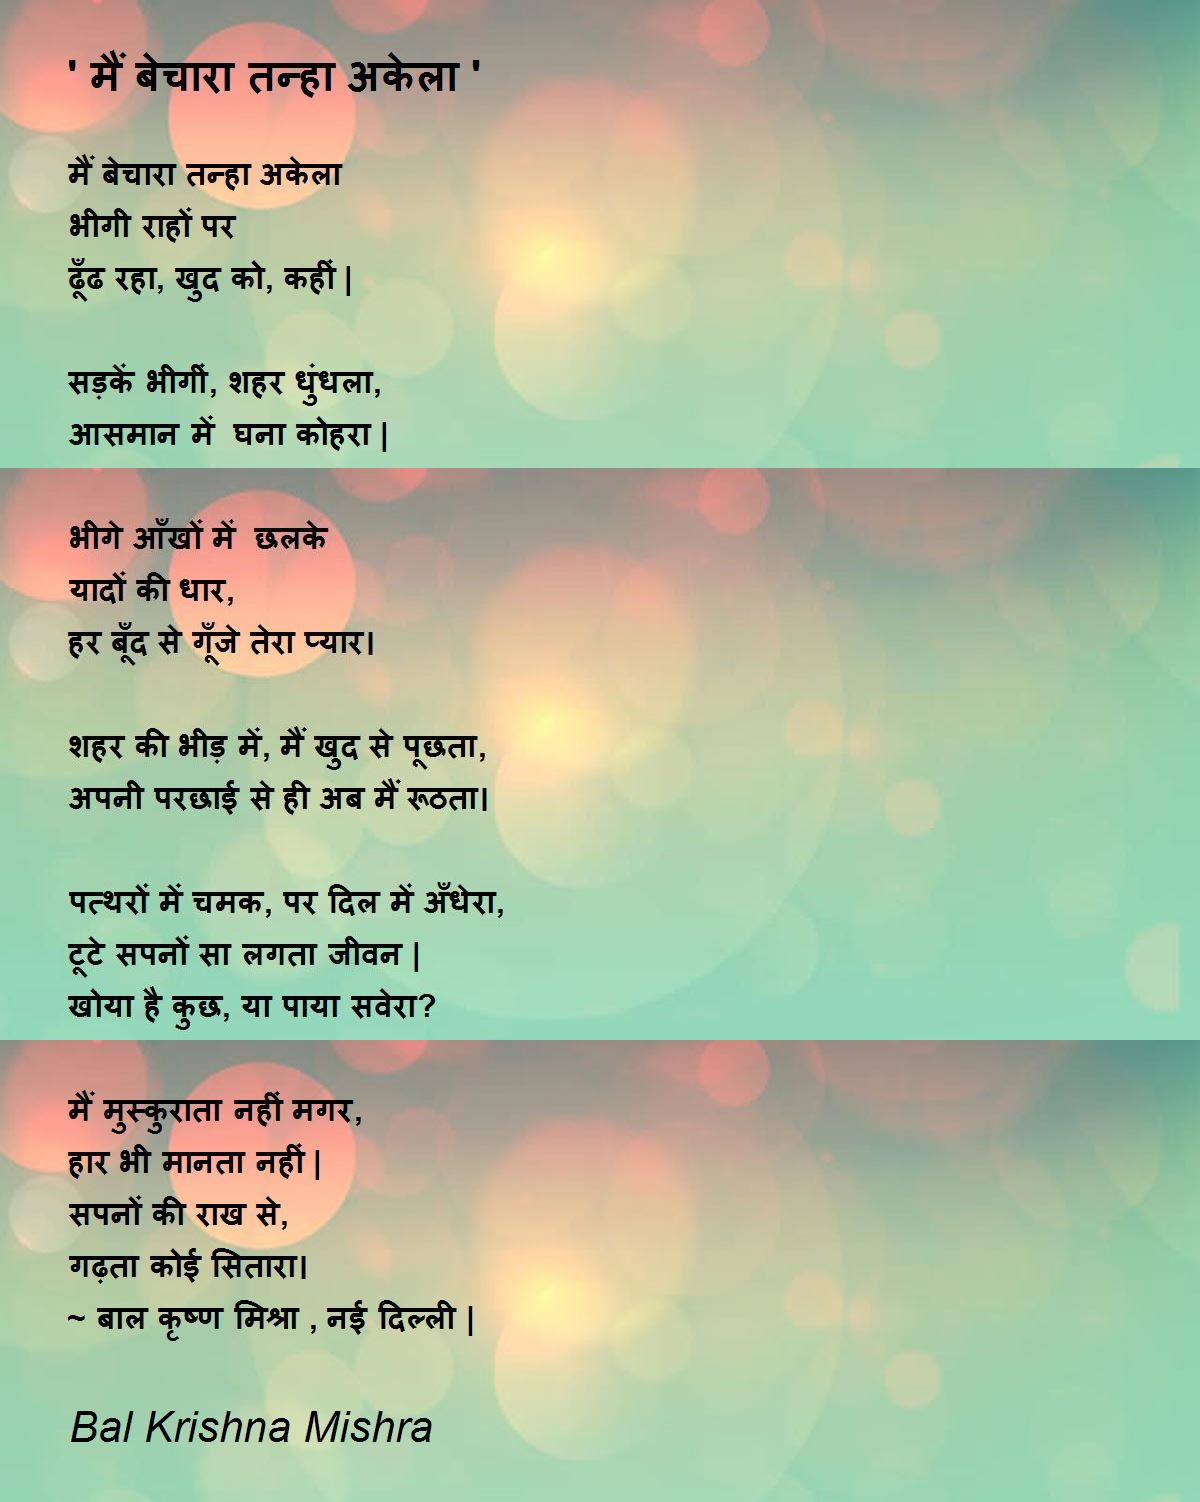 ' मैं बेचारा तन्हा अकेला '
मैं बेचारा तन्हा अकेला
भीगी राहों पर
ढूँढ रहा, खुद को, कहीं |
सड़कें भीगीं, शहर धुंधला,
आसमान में  घना कोहरा |
भीगे आँखों में  छलके
यादों की धार,
हर बूँद से गूँजे तेरा प्यार।
शहर की भीड़ में, मैं खुद से पूछता,
अपनी परछाई से ही अब मैं रूठता।
पत्थरों में चमक, पर दिल में अँधेरा,
टूटे सपनों सा लगता जीवन |
खोया है कुछ, या पाया सवेरा?
मैं मुस्कुराता नहीं मगर,
हार भी मानता नहीं |
सपनों की राख से,
गढ़ता कोई सितारा।
~ बाल कृष्ण मिश्रा , नई दिल्ली |
Bal Krishna Mishra